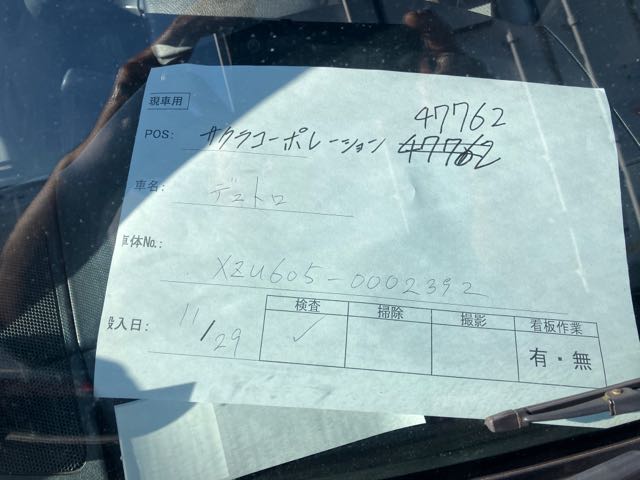 現車用
47762
POS: サクラコーポレーション 47762
車名: デュトロ
車体No.: XZU605-0002392
搬入日: 11/29
検査 掃除 撮影 看板作業
✓ 有・無